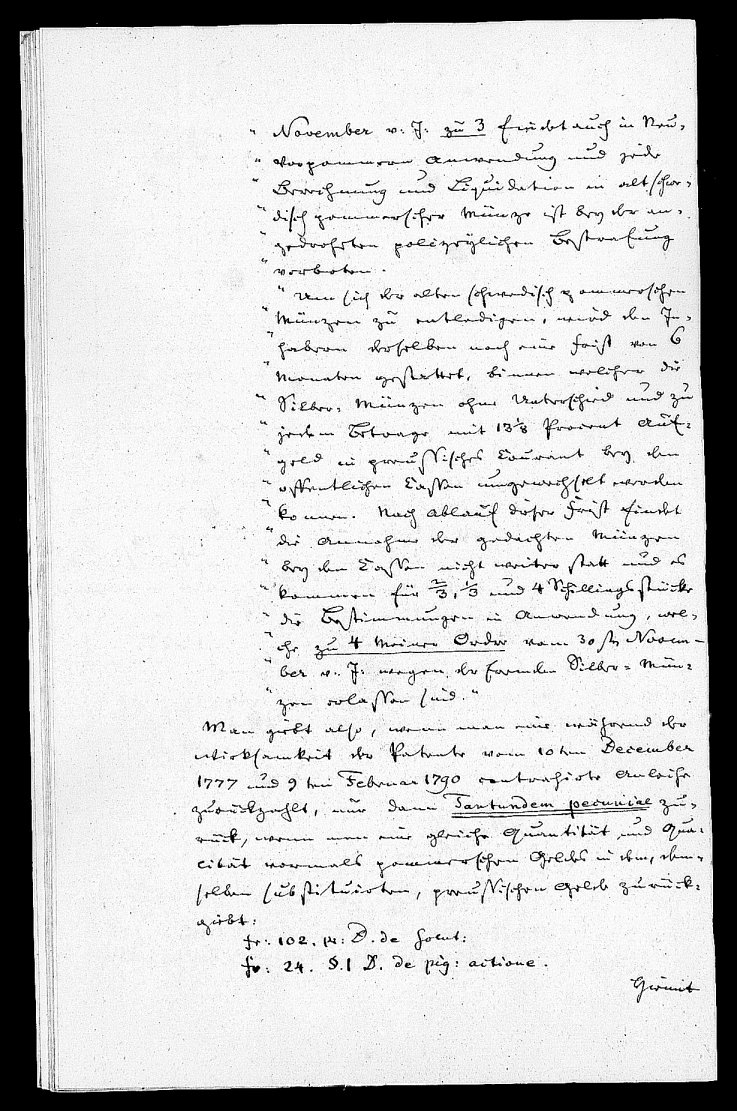 " November v: J: zu 3 findet auch in Neu-
" vorpommern Anwendung und jede
" Berechnung und Liquidation in alt schwe-
" disch pommerscher Münze ist bey der an-
" gedrohten polizeylichen Bestrafung
" verboten.
" Um sich der alten schwedisch pommerschen
" Münzen zu entledigen, wird den In-
" habern derselben noch eine Frist von 6
" Monaten gestattet, binnen welcher die
" Silber-Münzen ohne Unterschied und zu
" jedem Betrage mit 13⅓ Procent Auf-
" geld in preussisches Courant bey den
" offentlichen Cassen umgewechselt werden
" konnen. Nach Ablauf dieser Frist findet
" die Annahme der gedachten Münzen
" bey den Cassen nicht weiter statt und es
" kommen für ⅔, ⅓ und 4 Schillingsstücke
" die Bestimmungen in Anwendung, wel-
" che zu 4 Meiner Order vom 30sten Novem-
" ber v: J: wegen der fremden Silber-Mün-
" zen erlassen sind."
Man giebt also, wenn man eine während der
Wirksamkeit der Patente vom 10ten December
1777 und 9ten Februar 1790 contrahirte Anleihe
zurückzahlt, nur dann Tantundem pecuniae zu-
rück, wenn man eine gleiche Quantität und Qua-
lität vormals pommerschen Geldes in dem, dem-
selben substituirten, preussischen Gelde zurück-
giebt:
fr: 102. pr: D. de solut:
fr: 24. §.1 D. de pig: actione.